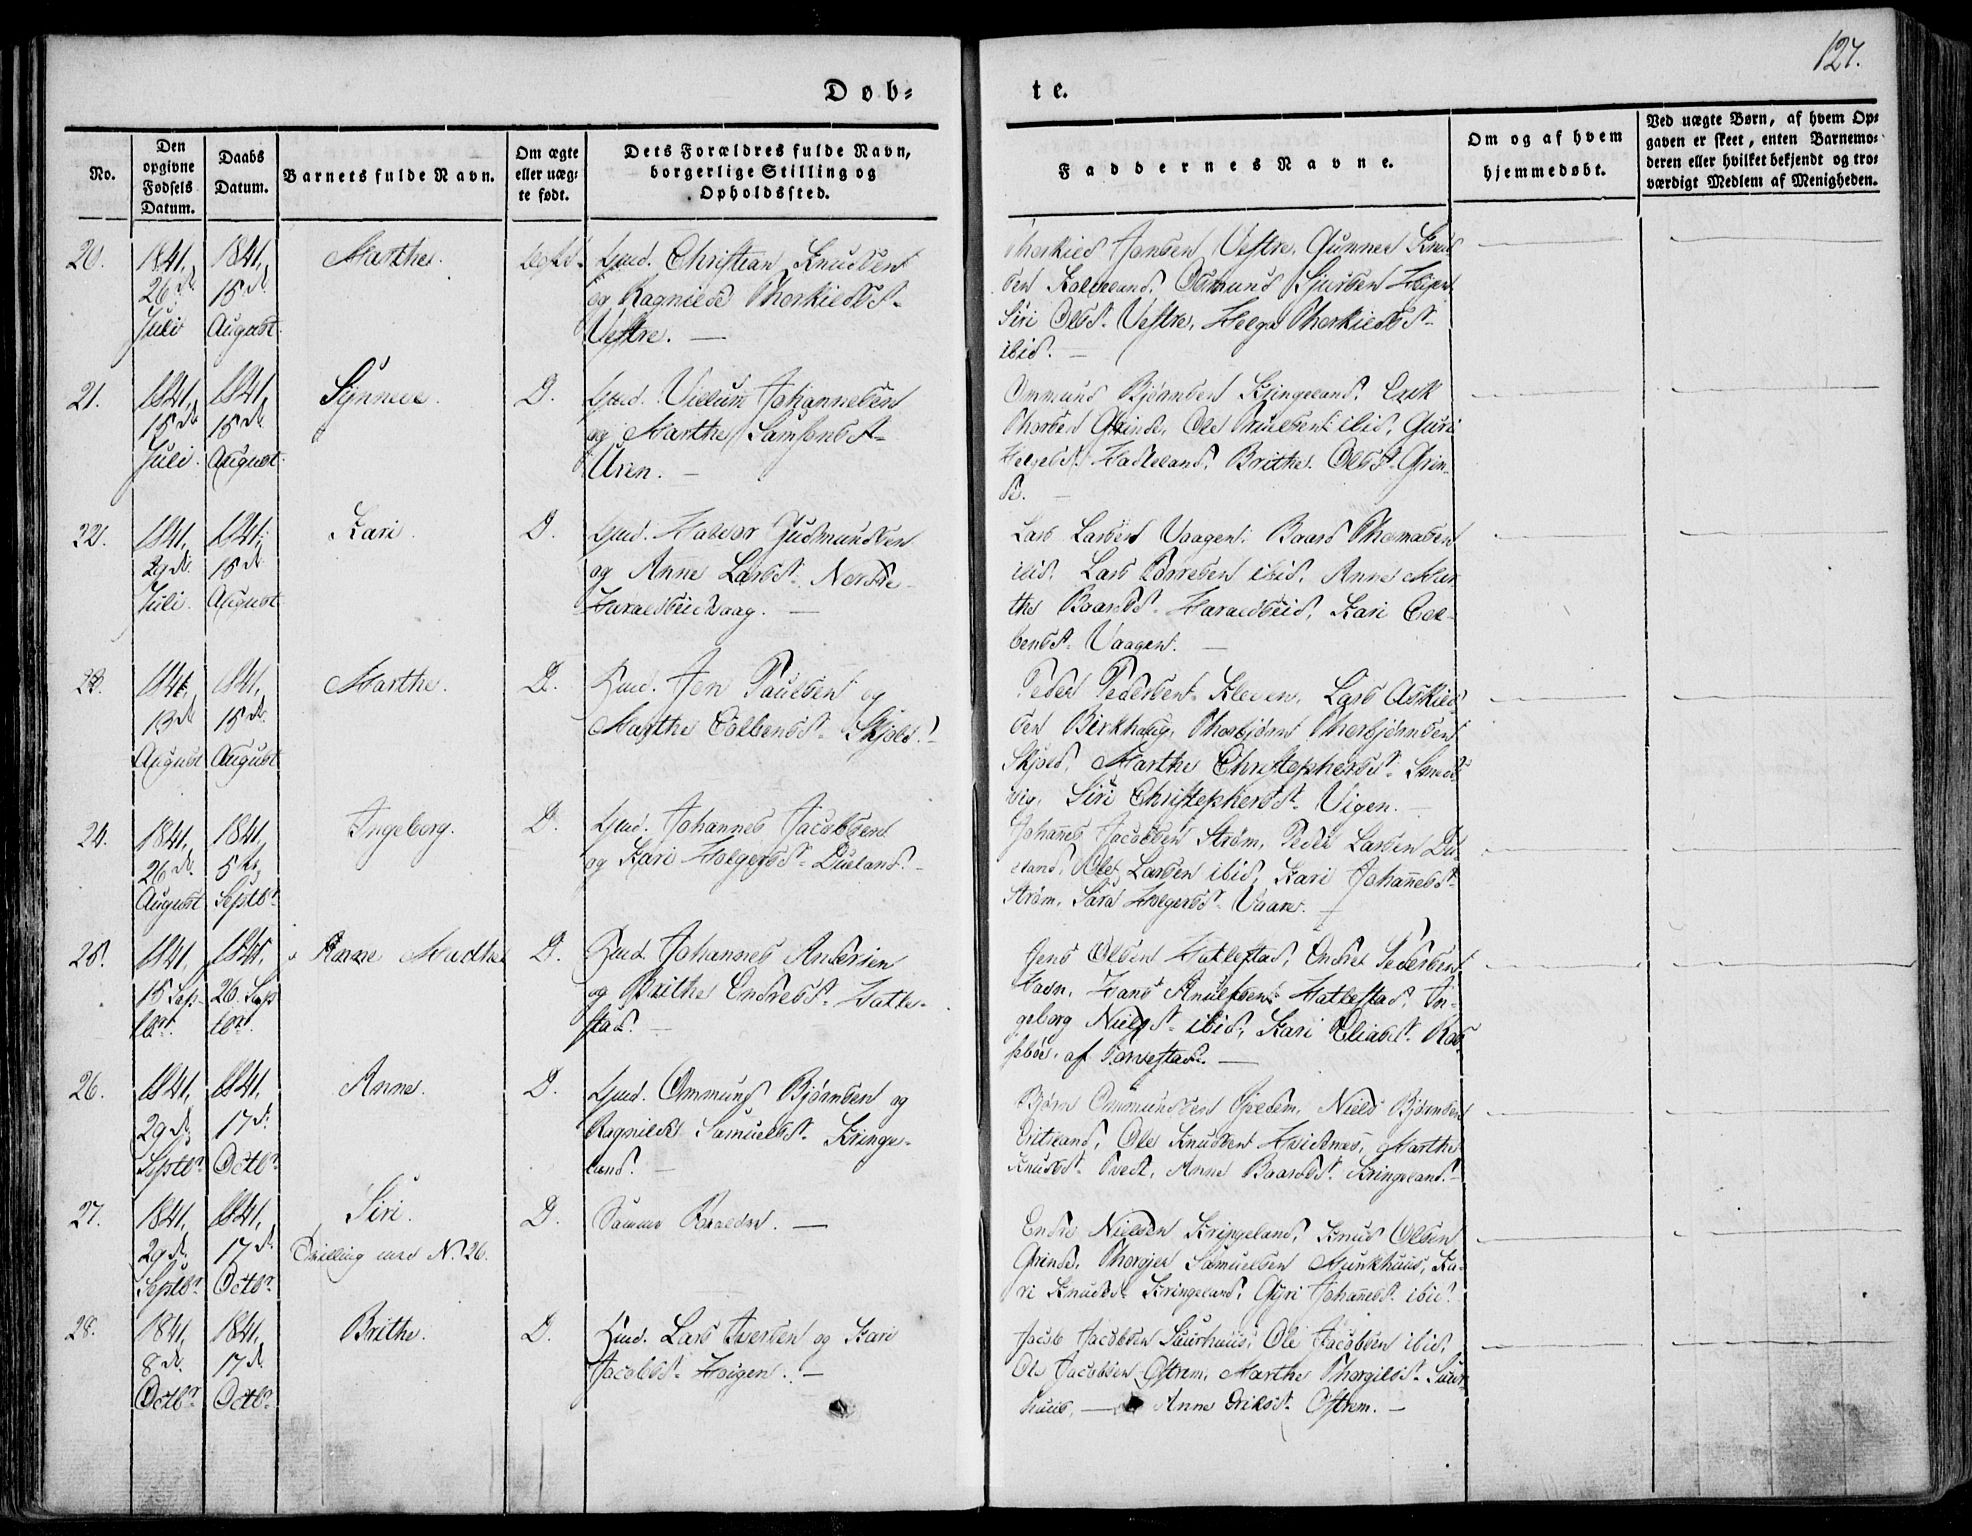 127.
Døb-
te.
No.
Den opgivne Fødsels Datum.
Daabs Datum.
Barnets fulde Navn.
Om ægte eller uægte født.
Dets Forældres fulde Navn, borgerlige Stilling og Opholdssted.
Faddernes Navne.
Om og af hvem hjemmedøbt.
Ved uægte Børn, af hvem Opgaven er skeet, enten Barnemoderen eller hvilket bekjendt og troværdigt Medlem af Menigheden.
20.
1841,
26 d.
Juli
1841,
15 d.
August
Marthe.
Christian Knudsen
og Ragnilde Thorkieldsd.
Vestre. —
Thorkield Jansen Vestre, Gunner Knud
sen
Siri Olsd. Vestre, Helga Thorkieldsd.
ibid. —
21.
1841,
15 d.
Juli.
1841,
15 d.
August.
Synneve.
D.
Villum Johannesen
og Marthe Samsonsd.
Uren. —
Ommund Bjørnsen Kringeland, Erik
Thorsen Grinde, Ole ibid, Guri
Helgesd. Hatteland, Brithe Olsd. Grin-
de. —
22.
1841,
29 d.
Juli.
1841,
15 d.
August
Kari.
D.
Halvor Gudmundsen
og Anne Larsd. Nordre
Haraldseidvaag. —
Lars Larsen Vaagen, Baard Thomasen
ibid, Lars ibid, Anne Mar
the Baardsd. Haraldseid, Kari Col-
bensd. Vaagen. —
23.
1841,
13 d.
August
1841,
15 d.
August
Marthe.
D.
Jon Paulsen og
Marthe Colbensd. Skjold. —
Peder Pedersen Kleven, Lars Askield
sen Birkhaug, Thorbjørn Thorbjørnsen
Skjold, Marthe Christophersd.
Siri Christophersd. Vigen. —
24.
1841,
26 d.
August
1841,
5 te
Septbr
Ingeborg.
D.
Johannes Jacobsen
og Kari Holgersd. Dueland. —
Johannes Jacobsen Strøm, Peder Larsen Du
eland, Ole Larsen ibid, Kari Johannesd.
Strøm, Sara Holgersd.
25.
1841,
15 Sep
tbr.
1841,
26 Sep
tbr.
Anne Marthe
D.
Johannes Andersen
og Brithe Endresd. Hatle-
stad. —
Jens Olsen Hatlestad, Endre Pedersen
Havn, Hans Knudsen Hatlestad, In-
geborg Nielsd. ibid, Kari Eliasd.
26.
1841,
29 d.
Septbr
1841,
17 d.
Octbr
Anne.
D.
Ommund Bjørnsen og
Ragnilde Samuelsd. Kringe-
land. —
Bjørn Ommundsen Niels Bjørnsen
Ole Knudsen Hvidnes, Marthe
Knudsd. Tvedt, Anne Baardsd. Kringeland. —
27.
1841,
29 d.
Septbr
1841,
17 d.
Octbr
Siri.
Tvilling med No. 26.
D.
Samme Forældre. —
Endre Nielsen Kringeland, Knud Olsen
Grinde, Thorgier Samuelsen Munkhuus, Ka-
ri Knudsd. Kringeland, Guri Johannesd. ibid.
28.
1841,
8 d.
Octbr
1841,
17 d.
Octbr
Brithe.
D.
Lars Iversen og Kari
Jacobsd. Høigen. —
Jacob Jacobsen Ole Jacobsen ibid,
Ole Jacobsen Østrem, Marthe Thorgilsd.
— Anne Eriksd. Østrem. —